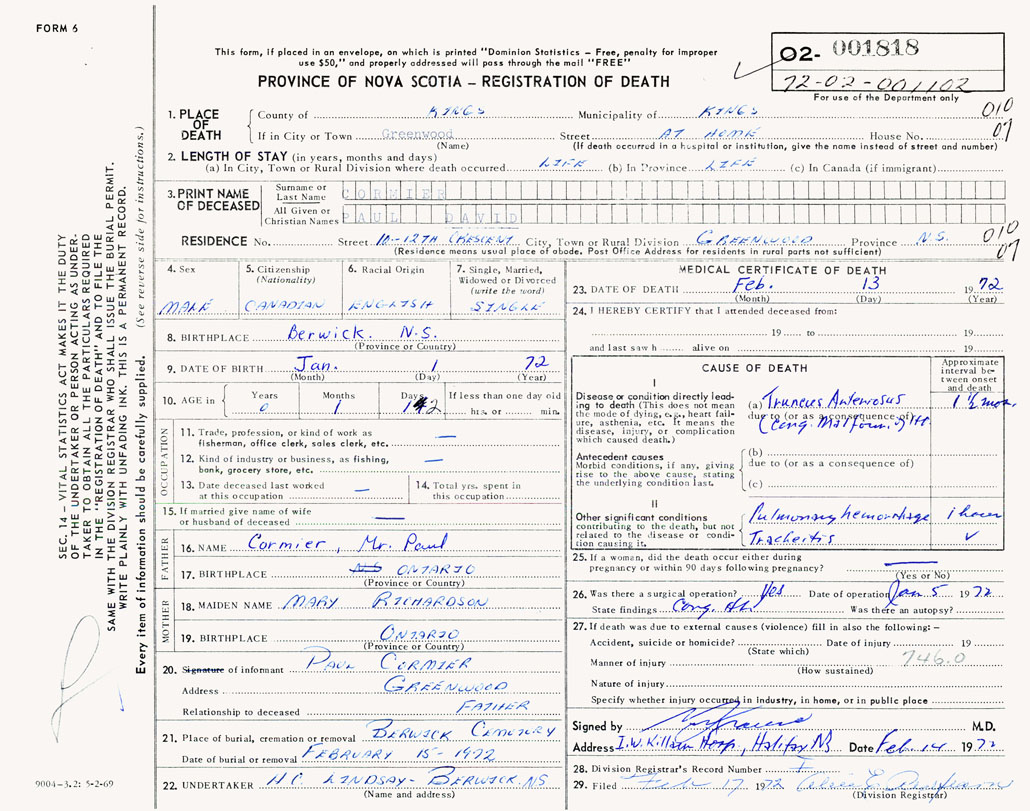 FORM 6
This form, if placed in an envelope, on which is printed "Dominion Statistics – Free, penalty for improper
use $50," and properly addressed will pass through the mail "FREE"
PROVINCE OF NOVA SCOTIA – REGISTRATION OF DEATH
02- 001818
72-02-001102
For use of the Department only
SEC. 14 – VITAL STATISTICS ACT MAKES IT THE DUTY
OF THE UNDERTAKER OR PERSON ACTING AS UNDER-
TAKER TO OBTAIN ALL THE PARTICULARS REQUIRED
IN THE "REGISTRATION OF DEATH" AND TO FILE THE
SAME WITH THE DIVISION REGISTRAR WHO SHALL ISSUE THE BURIAL PERMIT.
WRITE PLAINLY WITH UNFADING INK. THIS IS A PERMANENT RECORD.
Every item of information should be carefully supplied. (See reverse side for instructions.)
1. PLACE OF DEATH
County of KINGS Municipality of KINGS 010
If in City or Town Greenwood Street AT HOME House No. 07
(Name) (If death occurred in a hospital or institution, give the name instead of street and number)
2. LENGTH OF STAY (in years, months and days)
(a) In City, Town or Rural Division where death occurred LIFE (b) In Province LIFE (c) In Canada (if immigrant)
3. PRINT NAME OF DECEASED
Surname or Last Name CORMIER
All Given or Christian Names PAUL DAVID
RESIDENCE No. Street 10-12TH CRESCENT City, Town or Rural Division GREENWOOD Province N.S. 010
(Residence means usual place of abode. Post Office Address for residents in rural parts not sufficient) 07
4. Sex
MALE
5. Citizenship (Nationality)
CANADIAN
6. Racial Origin
ENGLISH
7. Single, Married, Widowed or Divorced (write the word)
SINGLE
8. BIRTHPLACE Berwick, N.S.
(Province or Country)
9. DATE OF BIRTH Jan. 1 72
(Month) (Day) (Year)
10. AGE in
Years Months Days If less than one day old
0 1 12 hrs. or min.
OCCUPATION
11. Trade, profession, or kind of work as
fisherman, office clerk, sales clerk, etc. —
12. Kind of industry or business, as fishing,
bank, grocery store, etc. —
13. Date deceased last worked
at this occupation —
14. Total yrs. spent in
this occupation
15. If married give name of wife
or husband of deceased —
FATHER
16. NAME Cormier, Mr. Paul
17. BIRTHPLACE NS ONTARIO
(Province or Country)
MOTHER
18. MAIDEN NAME MARY RICHARDSON
19. BIRTHPLACE ONTARIO
(Province or Country)
20. Signature of informant PAUL CORMIER
Address GREENWOOD
Relationship to deceased FATHER
21. Place of burial, cremation or removal BERWICK CEMETERY
Date of burial or removal FEBRUARY 15-1972
22. UNDERTAKER H.C. LINDSAY- BERWICK, NS
(Name and address)
9004-3.2: 5-2-69
MEDICAL CERTIFICATE OF DEATH
23. DATE OF DEATH Feb. 13 1972
(Month) (Day) (Year)
24. I HEREBY CERTIFY that I attended deceased from:
19 to 19
and last saw h alive on 19
CAUSE OF DEATH
Approximate interval between onset and death
I
Disease or condition directly lead-
ing to death (This does not mean
the mode of dying, e.g., heart fail-
ure, asthenia, etc. It means the
disease, injury, or complication
which caused death.)
(a) Truncus Arteriosus 1 ½ mon.
due to (or as a consequence of)
(Cong. Malform. of Ht.
Antecedent causes
Morbid conditions, if any, giving
rise to the above cause, stating
the underlying condition last.
(b)
due to (or as a consequence of)
(c)
II
Other significant conditions
contributing to the death, but not
related to the disease or condi-
tion causing it.
Pulmonary hemorrhage 1 hour
Tracheitis ✓
25. If a woman, did the death occur either during
pregnancy or within 90 days following pregnancy? —
(Yes or No)
26. Was there a surgical operation? Yes Date of operation Jan 5 1972
State findings Cong. Ht. Was there an autopsy?
27. If death was due to external causes (violence) fill in also the following: –
Accident, suicide or homicide? Date of injury 19
(State which)
Manner of injury 746.0
(How sustained)
Nature of injury
Specify whether injury occurred in industry, in home, or in public place
Signed by M.D.
Address I.W. Killam Hosp., Halifax NS Date Feb. 14 1972
28. Division Registrar's Record Number
29. Filed Feb 17 1972
(Division Registrar)